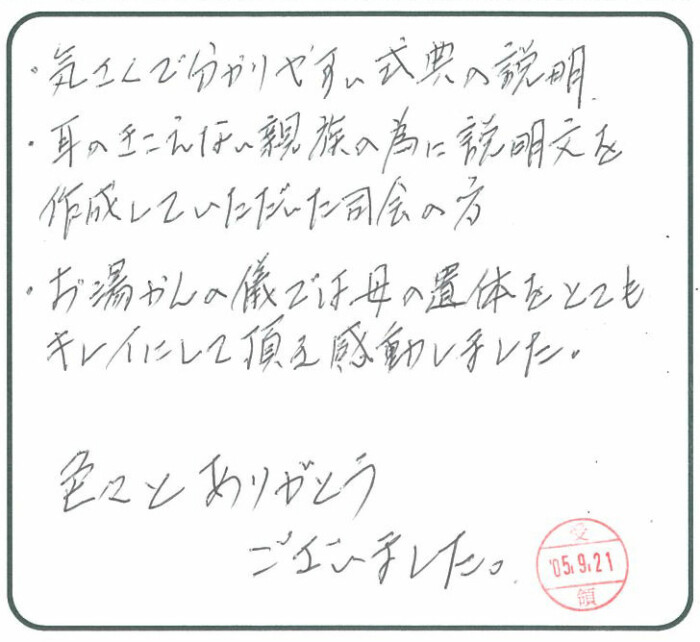 ・気さくで分かりやすい式典の説明
・耳のきこえない親族の為に説明文を
作成していただいた司会の方
・お湯かんの儀では母の遺体をとても
キレイにして頂き感動しました。
色々とありがとう
ございました。
受
'05.9.21
領